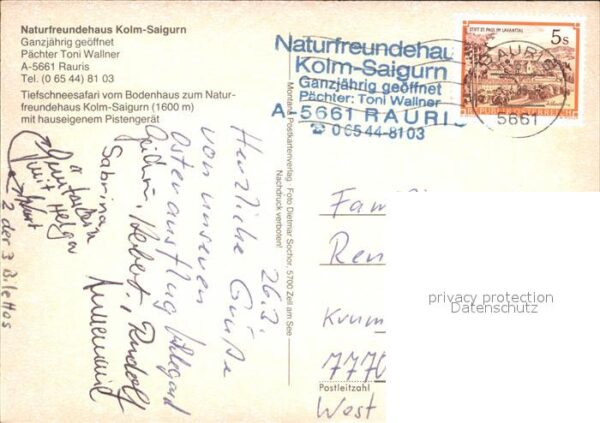 Naturfreundehaus Kolm-Saigurn
Ganzjährig geöffnet
Pächter Toni Wallner
A-5661 Rauris
Tel. (0 65 44) 81 03
Tiefschneesafari vom Bodenhaus zum Natur-
freundehaus Kolm-Saigurn (1600 m)
mit hauseigenem Pistengerät
Naturfreundehau
Kolm-Saigurn
Ganzjährig geöffnet
Pächter: Toni Wallner
A-5661 RAURIS
☎ 06544-8103
STIFT ST. PAUL IM LAVANTTAL
5s
REPUBLIK ÖSTERREICH
RAURIS
5661
Montana Postkartenverlag Foto Dietmar Sochor, 5700 Zell am See
Nachdruck verboten!
26.3.
Herzliche Grüße
von unserem
Osterausflug
Herbert, Rudolf
Sabrina
mit Helga
2 der 3 Bilettos
Fam
Ren
Krum
7770
Postleitzahl
West
privacy protection
Datenschutz